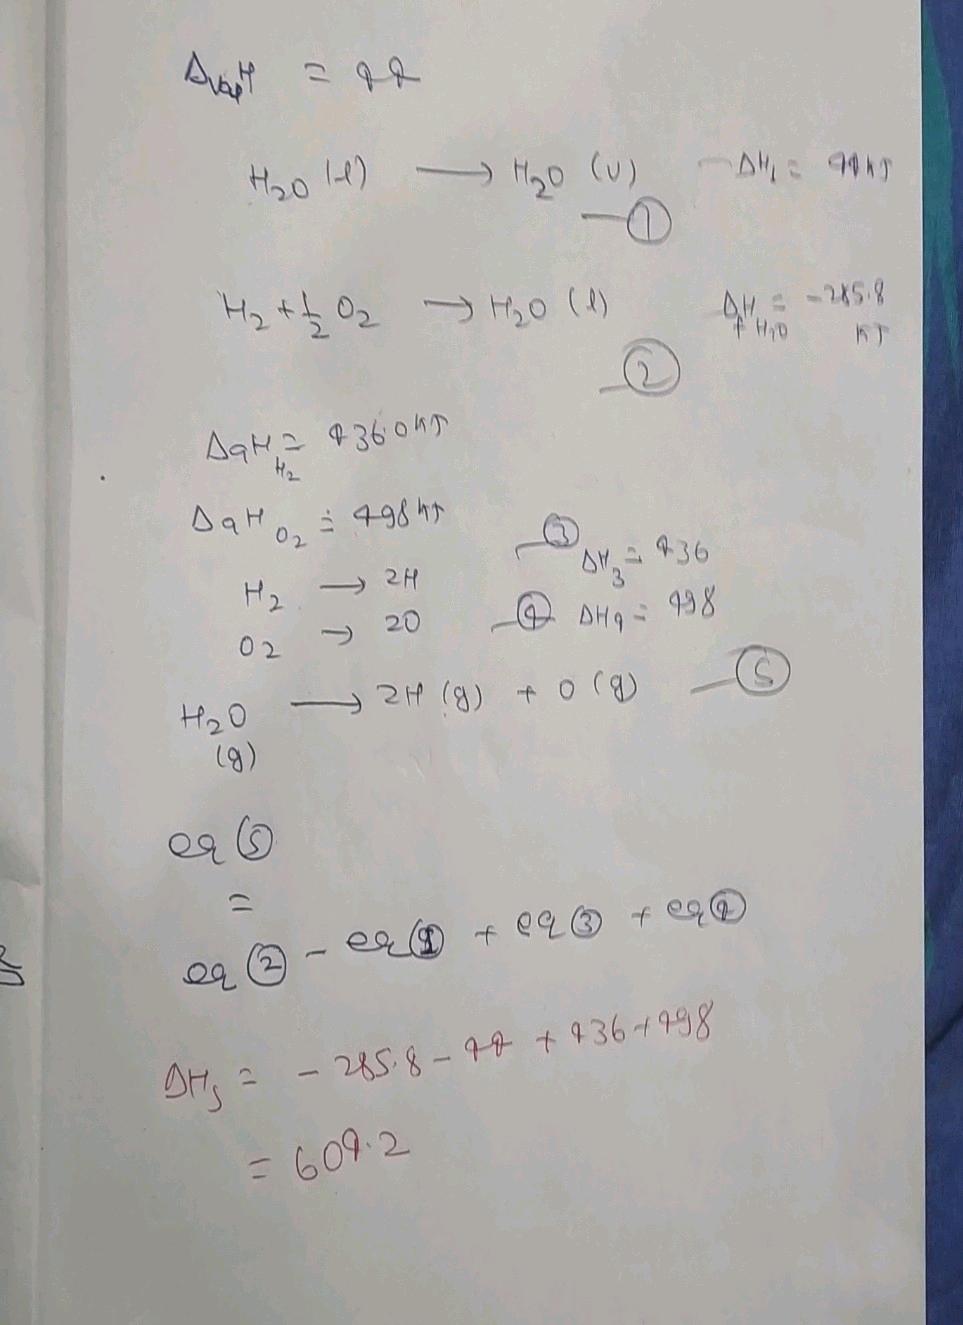 ΔvapH = 44
H2O (l) → H2O (v) — ΔH1 = 44 kJ
— ①
H2 + 1/2 O2 → H2O (l) ΔfH H2O = -285.8 kJ
— ②
ΔaH H2 = 436.0 kJ
ΔaH O2 = 498 kJ
H2 → 2H — ③ ΔH3 = 436
O2 → 2O — ④ ΔH4 = 498
H2O (g) → 2H (g) + O (g) — ⑤
eq ⑤
=
eq ② - eq ① + eq ③ + eq ④
ΔH5 = - 285.8 - 44 + 436 + 498
= 604.2